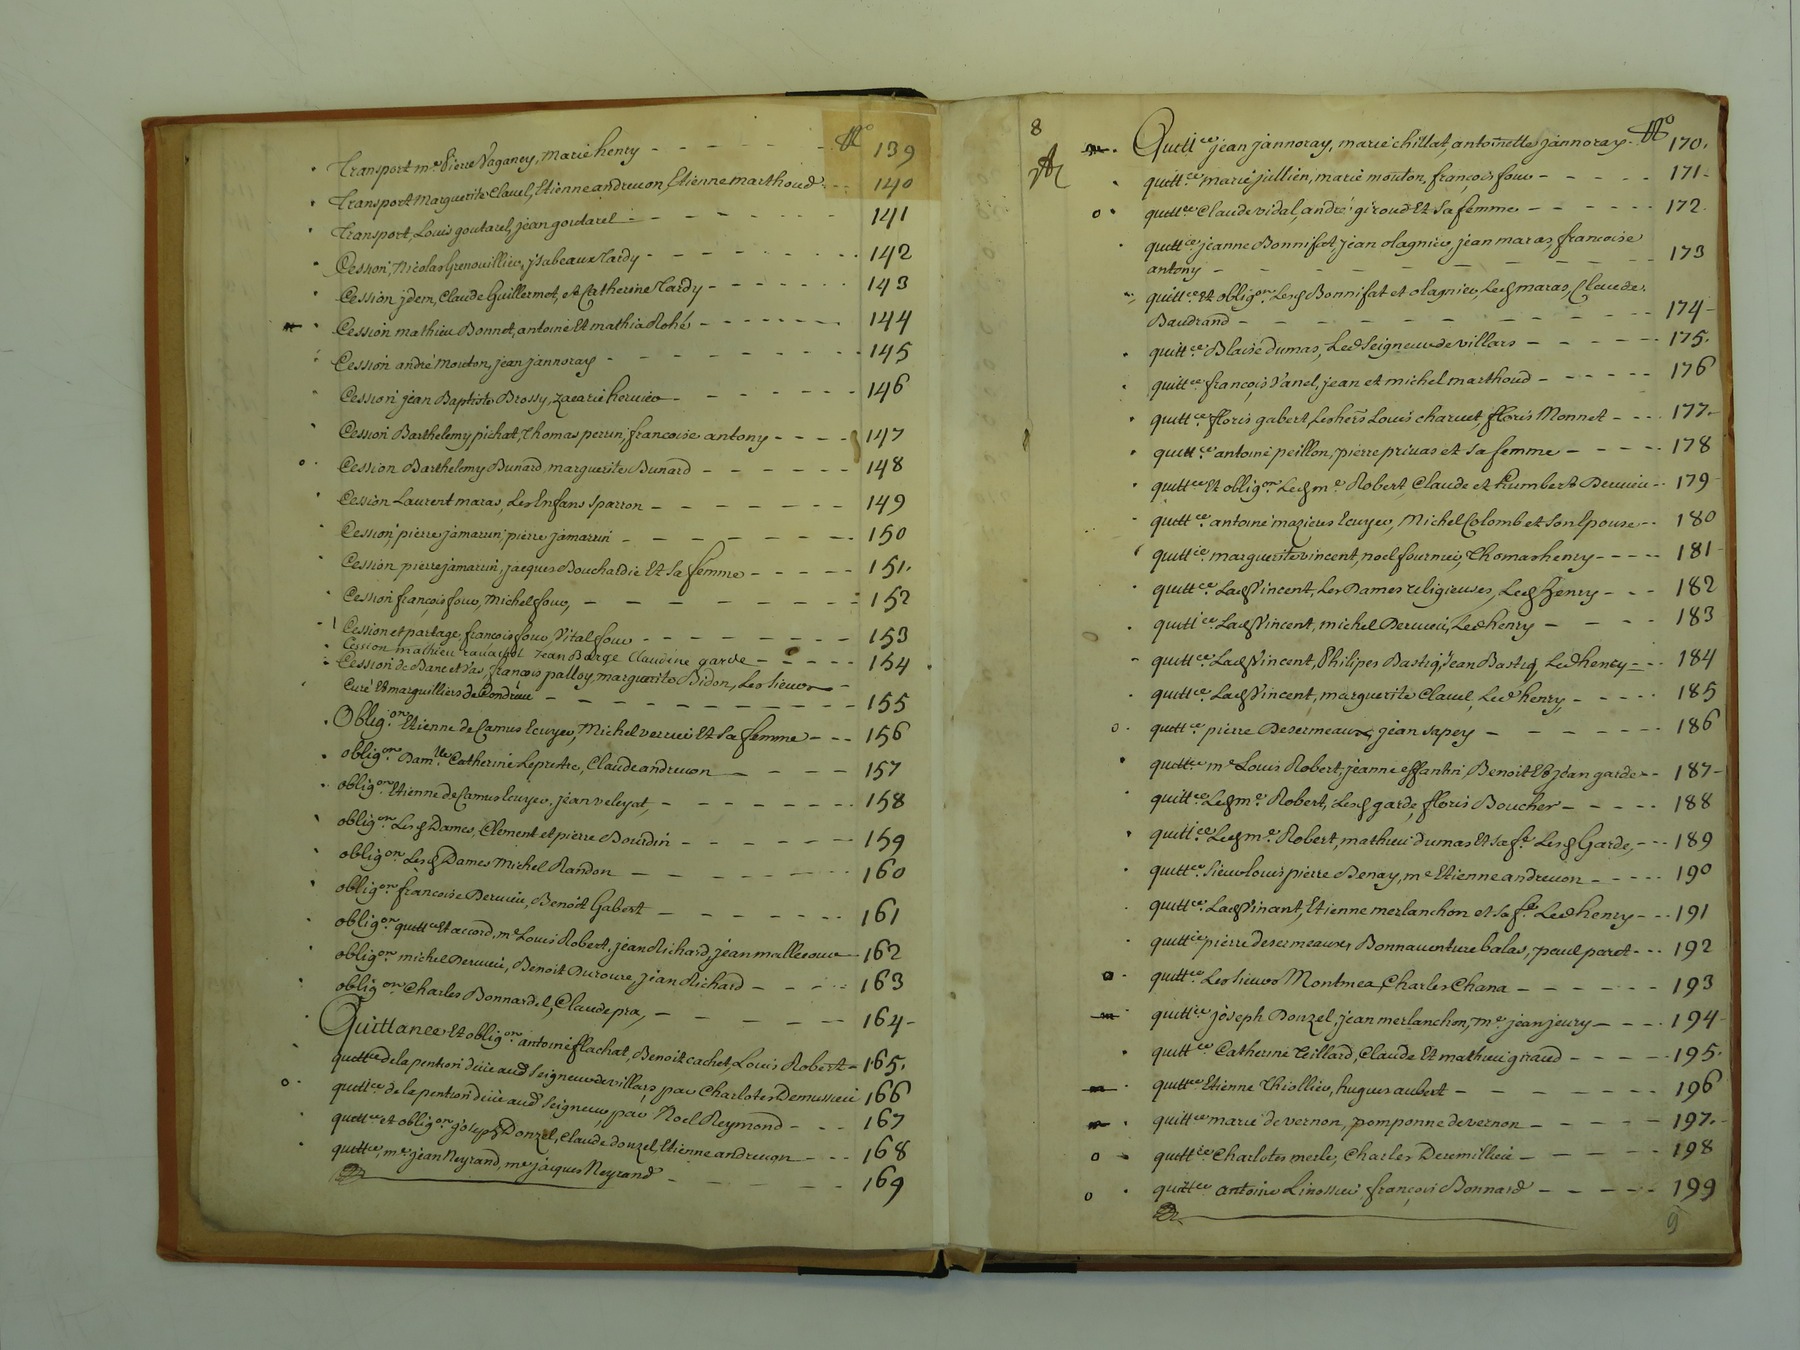 N° 139
Transport m.e Pierre Vaganey, Marie henry - - - - -
Transport Marguerite Clauel, Etienne andreuon, Etienne marthoud - - 140
Transport, Louis goutarel, jean goutarel - - - - - - 141
Cession, Nicolas Grenouillier, ysabeaux Tardy - - - - - - 142
Cession jdem, Claude Guillermet, et Catherine Tardy - - - - - - 143
Cession mathieu Bonnet, antoine Et mathia Rohé - - - - - - 144
Cession andré Mouton, jean jannoray - - - - - - 145
Cession jean Baptiste Brossy, zacarie heruier - - - - - 146
Cession Barthelemy pichat, Thomas perrin, francoise antony - - - - 147
o Cession Barthelemy Bunard, marguerite Bunard - - - - - 148
Cession Laurent maras, Les Enfans Sparron - - - - - - 149
Cession, pierre jamarin, pierre jamarin - - - - - - 150
Cession pierre jamarin, jacques Bouchardié Et Sa femme - - - - 151.
Cession françois foux, Michel foux, - - - - - - - 152
Cession et partage, francois foux, Vital foux - - - - - - 153
Cession mathieu rauachol Jean Barge Claudine garde - - - - 154
Cession de Banc et Vas, françois palloy, marguerite Bidon, Les Sieurs -
Curé Et marguilliers de Condrieu - - - - - - - - - 155
Oblig.on Etienne de Camus Ecuyer, Michel verrier Et Sa femme - - - 156
oblig.on Dam.lle Catherine Leprestre, Claude andreuon - - - - 157
oblig.on Etienne de Camus Ecuyer, jean veleyat, - - - - - - 158
oblig.on Les d Dames, Clement et pierre Bourdin - - - - - 159
oblig.on Les d Dames Michel Randon - - - - - - 160
oblig.on francoise Deruieu, Benoit Gabert - - - - - - 161
oblig.on quitt.ce Et accord, m.e Louis Robert, jean Richard, jean malleroux - 162
oblig.on michel Deruieu, Benoit Duroure, jean Richard - - - - 163
oblig.on Charles Bonnardel, Claude pra, - - - - - 164-
Quittance Et oblig.on antoine flachat, Benoit cachet, Louis Robert - 165.
o quitt.ce de la pention düe aud Seigneur de villars, par Charlotte Demussieu 166
quitt.ce de la pention düe aud Seigneur, par Noel Reymond - - - 167
quitt.ce et oblig.on joseph Donzel, Claude donzel, Etienne andreuon - - - 168
quitt.ce, m.e jean Neyrand, m.e jacques Neyrand - - - - - - 169
8
Quitt.ce jean jannoray, marie chillat, antoinette jannoray - N° 170.
quitt.ce marie jullien, marie mouton, françois foux - - - - - 171-
o quitt.ce Claude vidal, andré giroud Et Sa femme - - - - - 172.
quitt.ce jeanne Bonnifat, jean olagnier, jean maras, francoise
antony - - - - - - - - - 173
quitt.ce Et oblig.on Les d Bonnifat et olagnier, Led maras, Claude
Baudrand - - - - - - - - - 174-
quitt.ce Blaise dumas, Led Seigneur de villars - - - - - 175.
quitt.ce françois Vanel, jean et michel marthoud - - - - - 176
quitt.ce floris gabert, Les hers Louis charuet, floris Monnet - - - 177-
quitt.ce antoine peillon, pierre priuas et Sa femme - - - - 178
quitt.ce Et oblig.on Led m.e Robert, Claude et humbert Deruieu - - 179-
quitt.ce antoine mazieres Ecuyer, Michel Colomb et Son Epouse - - 180
quitt.ce marguerite vincent, noel fournier, Thomas henry - - - - 181-
quitt.ce Lad Vincent, Les Dames religieuses, Led henry - - - 182
quitt.ce Lad Vincent, michel Deruieu, Led henry - - - - 183
quitt.ce Lad Vincent, Philipes Bastiq, Jean Bastiq, Led henry - - - 184
quitt.ce Lad Vincent, marguerite Clauel, Led henry, - - - - 185
o quitt.ce pierre Desermeaux, jean Sapey - - - - - - 186
quitt.ce m.e Louis Robert, jeanne effantin, Benoit Et jean garde - - 187-
quitt.ce Led m.e Robert, Les d garde, floris Boucher - - - - - 188
quitt.ce Led m.e Robert, mathieu dumas Et Sa f.e Les d Garde, - - - 189
quitt.ce Sieur Louis pierre Benay, m.e Etienne andreuon - - - - 190
quitt.ce Lad Vincant, Etienne merlanchon et Sa f.e Led henry - - - 191
quitt.ce pierre desermeaux, Bonnauenture balas, paul paret - - - 192
o quitt.ce Les Sieurs Montmea, Charles Chana - - - - - - 193
quitt.ce joseph Donzel, jean merlanchon, m.e jean jeury - - - - 194-
quitt.ce Catherine Teillard, Claude Et mathieu giraud - - - - - 195.
quitt.ce Etienne Thiollier, hugues aubert - - - - - - 196
quitt.ce marie de vernon, pomponne de vernon - - - - - 197.-
o quitt.ce Charlotte merle, Charles Deremillieu - - - - - 198
o quitt.ce antoine Linossier, françois Bonnard - - - - - 199
9